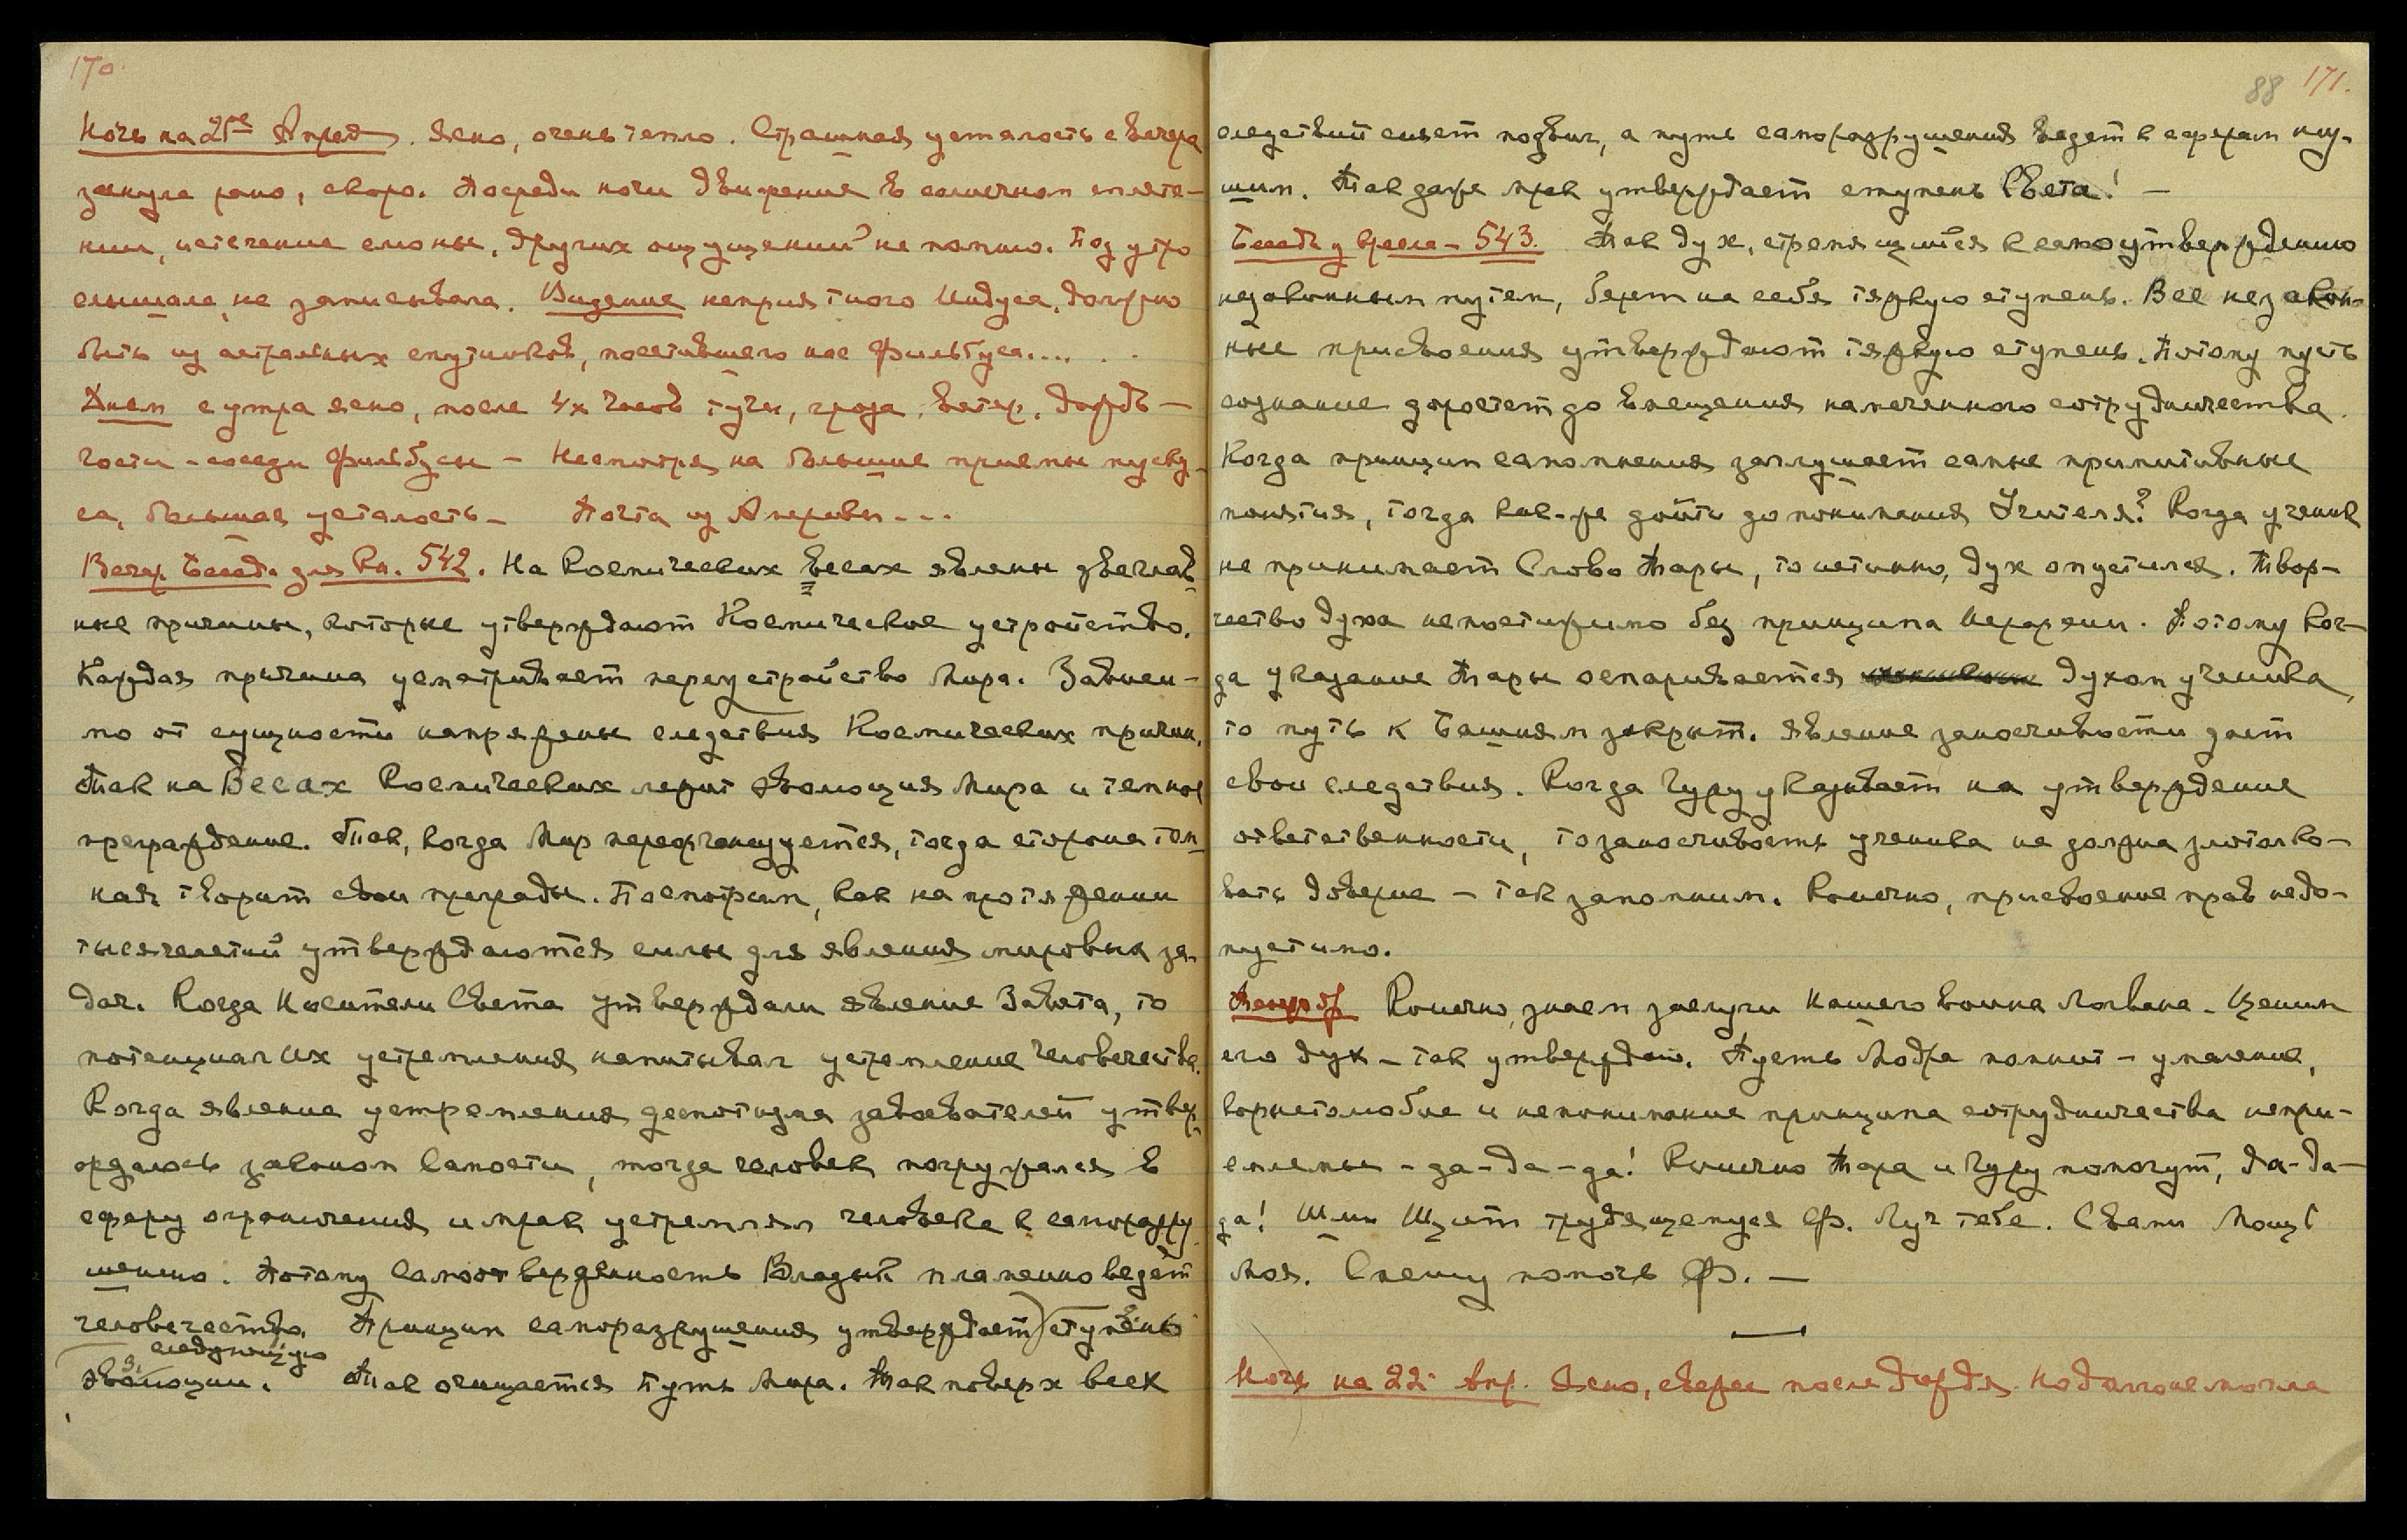 170.
Ночь на 21ое Апреля. Ясно, очень тепло. Страшная усталость с вечера
заснула рано, скоро. Посреди ночи движение в солнечном сплете-
нии, истечение слюны, других ощущений не помню. Под утро
слышала, не записывала. Видение неприятного Индуса, должно
быть из астральных спутников, посетившего нас Фильбуса.... . .
Днем с утра ясно, после 4х часов тучи, гроза, ветер, дождь —
гости - соседи Фильбусы - Несмотря на большие приемы муску-
са, большая усталость - Почта из Америки - - -
Вечер. Беседа для Кн. 542. На Космических Весах явлены две глав-
ные причины, которые утверждают Космическое устройство.
Каждая причина усматривает переустройство Мира. Зависи-
мо от сущности напряжены следствия Космических причин.
Так на Весах Космических лежит эволюция Мира и темное
преграждение. Так, когда Мир переорганизуется, тогда сторона тем-
ная творит свои преграды. Посмотрим, как на протяжении
тысячелетий утверждаются силы для явления мировых за-
дач. Когда Носители Света утверждали явление Завета, то
потенциал их устремления напитывал устремление человечества.
Когда явление устремления деспотизма завоевателей утвер-
ждалось законом Самости, тогда человек погружался в
сферу ограничения и мрак устремлял человека к саморазру
шению. Потому Самоотверженность Владык пламенно ведет
человечество. Принцип саморазрушения утверждает) ступень
следующую
эволюции. Так очищается путь Мира. Так поверх всех
88 171.
следствий сияет подвиг, а путь саморазрушения ведет к сферам низ-
шим. Так даже мрак утверждает ступень Света! —
Беседа у Кресла - 543. Так дух, стремящийся к самоутверждению
незаконным путем, берет на себя тяжкую ступень. Все незакон-
ные присвоения утверждают тяжкую ступень. Потому пусть
сознание дорастет до вмещения намеченного сотрудничества.
Когда принцип самомнения заглушает самые примитивные
понятия, тогда как-же дойти до понимания Учителя? Когда ученик
не принимает Слово Тары, то истинно, дух опустился. Твор-
чество духа непостижимо без принципа Иерархии. Потому ког-
да указание Тары оспаривается духом ученика,
то путь к Башням закрыт. Явление заносчивости дает
свои следствия. Когда Гуру указывает на утверждение
ответственности, то заносчивость ученика не должна злотолко-
вать доверие - так запомним. Конечно, присвоение прав недо-
пустимо.
Конечно, знаем заслуги нашего воина Логвана. Ценим
его дух - так утверждаю. Пусть Модра помнит - умаление,
корыстолюбие и непонимание принципа сотрудничества непри-
емлемы - да-да-да! Конечно Тара и Гуру помогут, да-да-
да! Шлю Щит трудящемуся Ф. Луч тебе. С вами Мощь
Моя. Спешу помочь Ф. —
—
Ночь на 22. Апр. Ясно, свежее после дождя. Но долго не могла